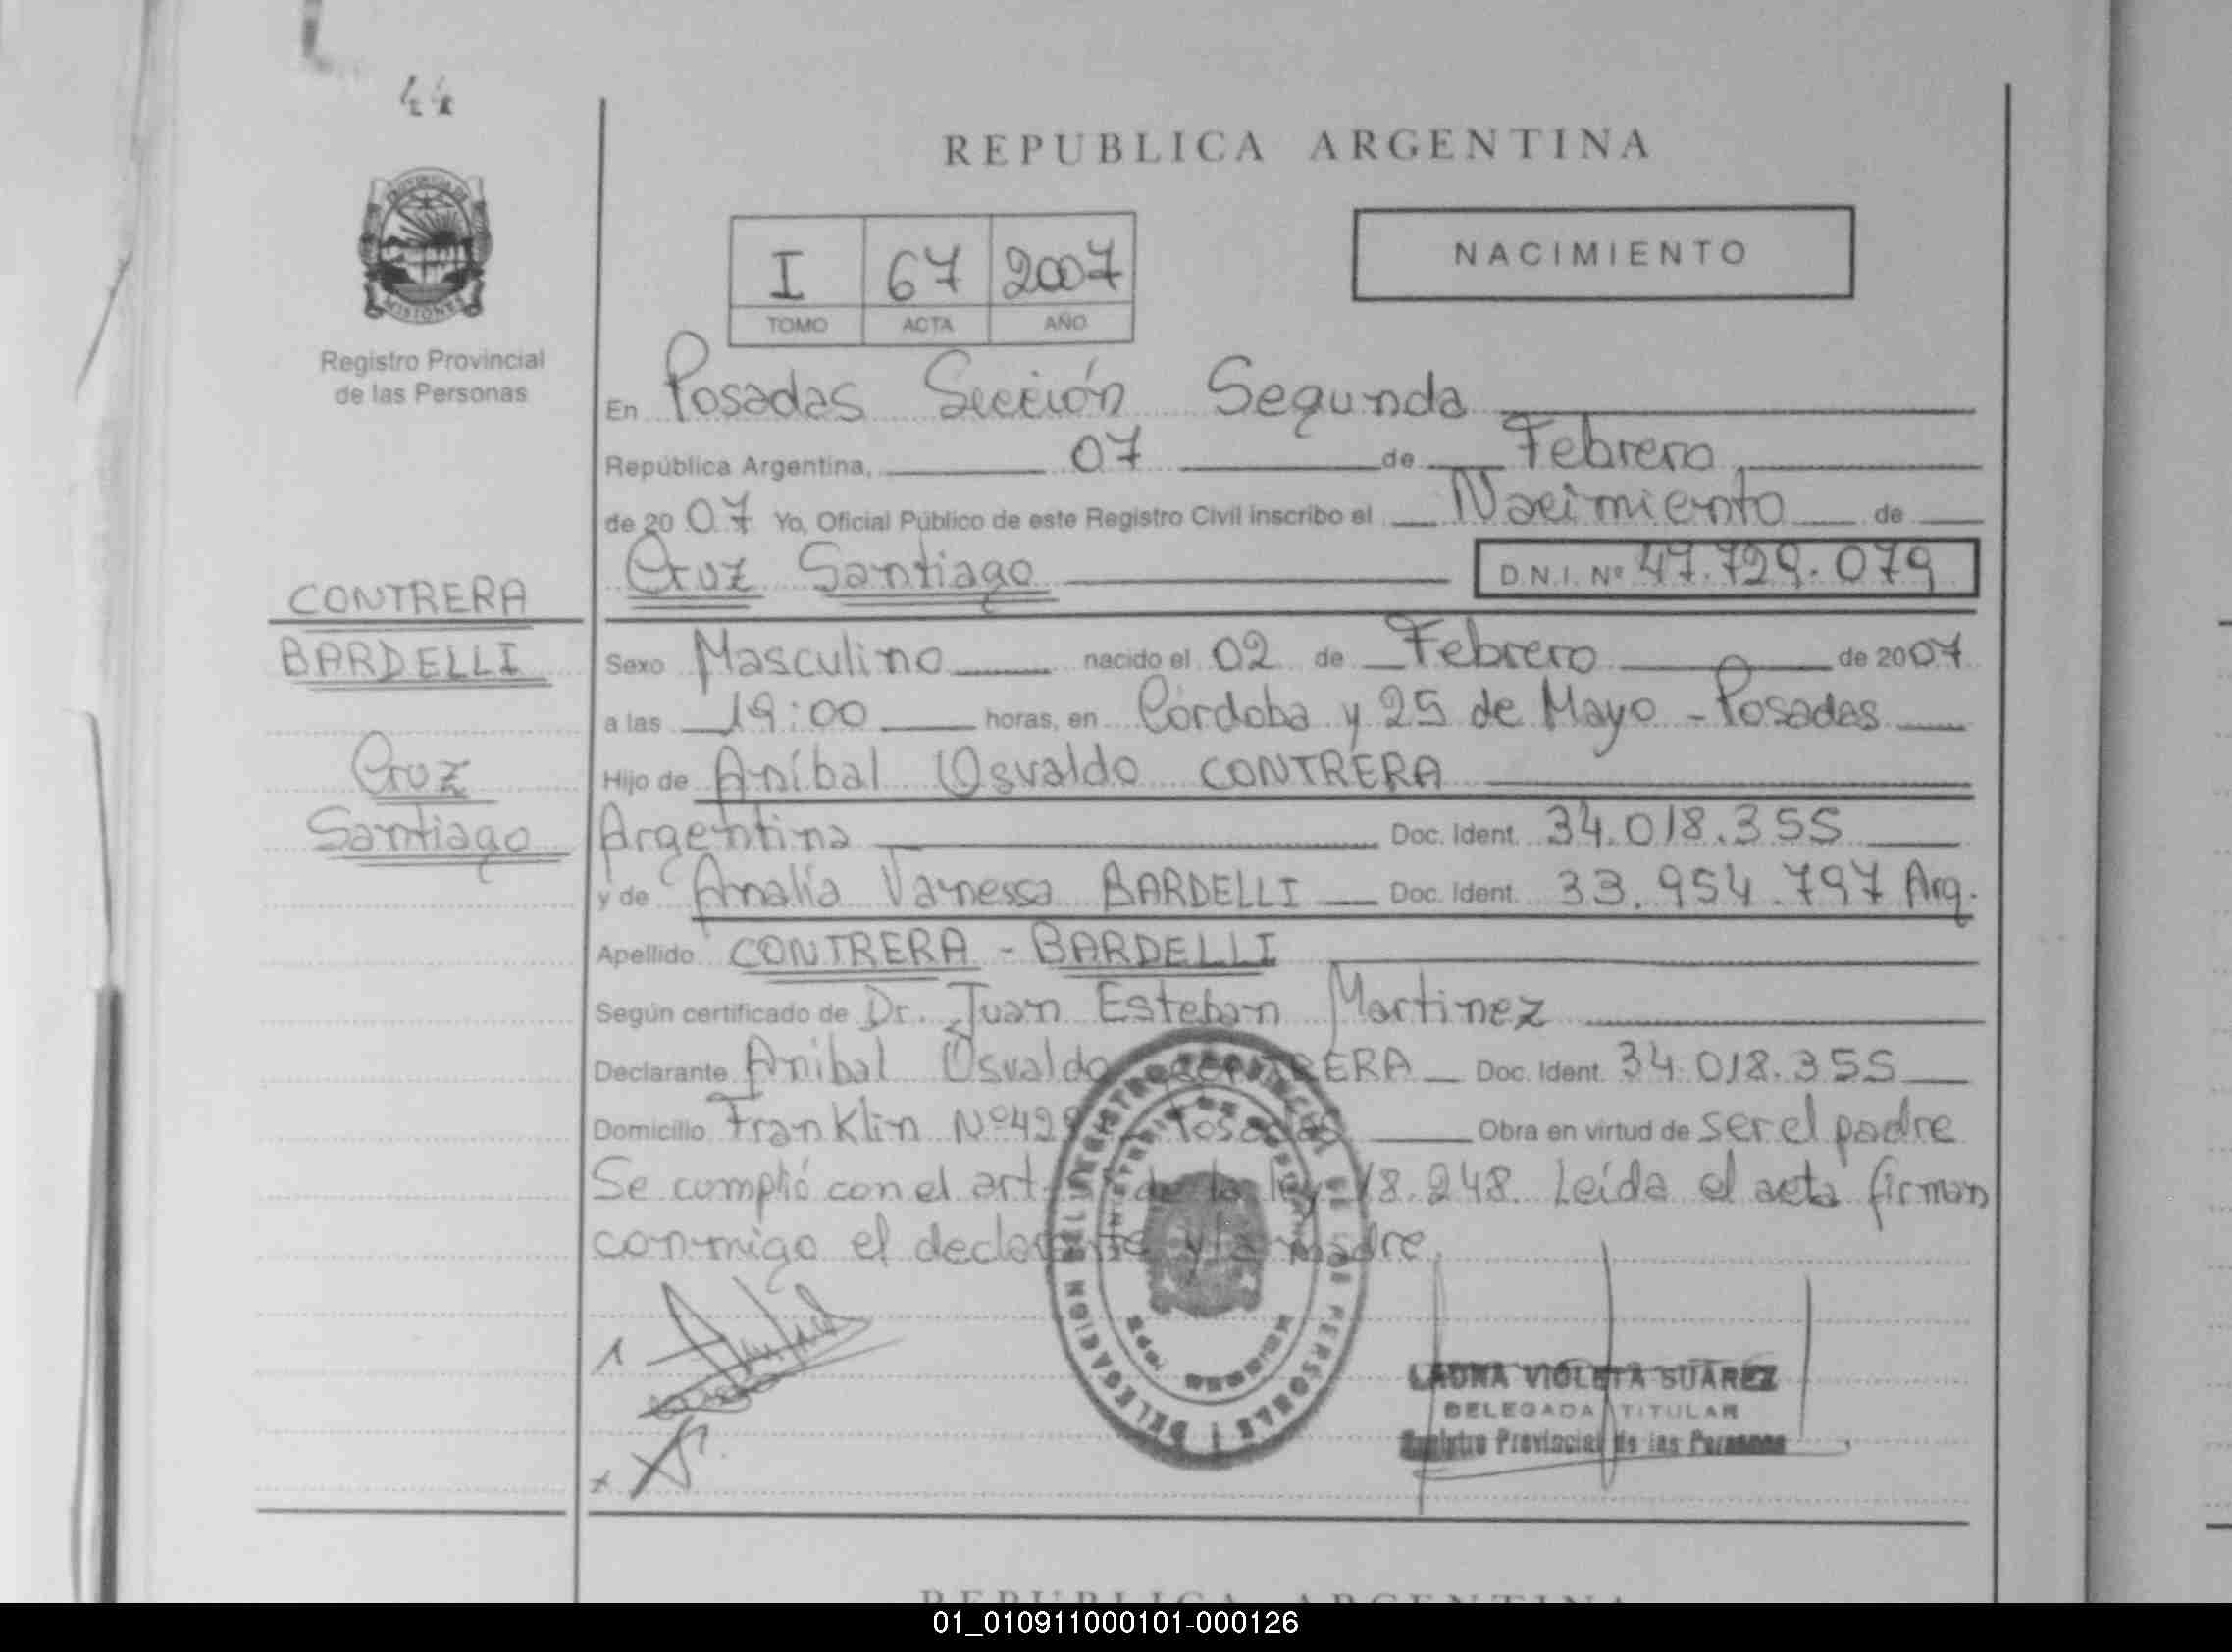 44
REPUBLICA ARGENTINA
PROVINCIA DE
MISIONES
Registro Provincial
de las Personas
I 67 2007
TOMO ACTA AÑO
NACIMIENTO
En Posadas Sección Segunda
República Argentina, 07 de Febrero
de 2007 Yo, Oficial Público de este Registro Civil inscribo el Nacimiento de
Cruz Santiago D.N.I. Nº 47.729.079
CONTRERA
BARDELLI
Cruz
Santiago
Sexo Masculino nacido el 02 de Febrero de 2007
a las 19:00 horas, en Córdoba y 25 de Mayo - Posadas
Hijo de Aníbal Osvaldo CONTRERA
Argentina Doc. Ident. 34.018.355
y de Amalia Vanessa BARDELLI Doc. Ident. 33.954.797 Arg.
Apellido CONTRERA - BARDELLI
Según certificado de Dr. Juan Esteban Martinez
Declarante Anibal Osvaldo CONTRERA Doc. Ident. 34.018.355
Domicilio Franklin Nº 429 Posadas Obra en virtud de ser el padre
Se cumplió con el art de la ley 18.248. Leída el acta firman
conmigo el declarante y la madre.
DELEGACION DEL REGISTRO PROVINCIAL DE LAS PERSONAS
LAURA VIOLETA SUAREZ
DELEGADA TITULAR
Registro Provincial de las Personas
REPUBLICA ARGENTINA
01_010911000101-000126